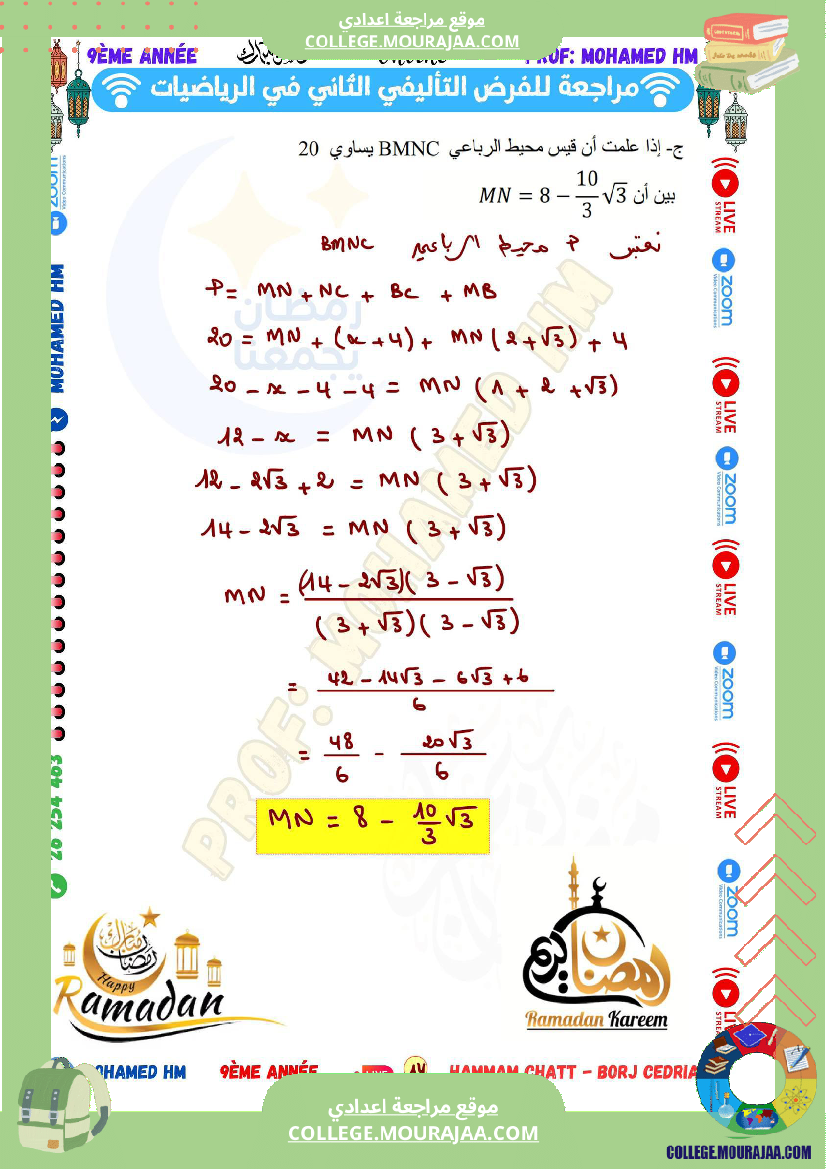 موقع مراجعة اعدادي
COLLEGE.MOURAJAA.COM
9ÈME ANNÉE
PROF: MOHAMED HM
مراجعة للفرض التأليفي الثاني في الرياضيات
ج- إذا علمت أن قيس محيط الرباعي BMNC يساوي 20
بين أن MN = 8 − 10/3 √3
نعتبر P محيط الرباعي BMNC
P = MN + NC + BC + MB
20 = MN + (x + 4) + MN (2 + √3) + 4
20 - x - 4 - 4 = MN (1 + 2 + √3)
12 - x = MN (3 + √3)
12 - 2√3 + 2 = MN (3 + √3)
14 - 2√3 = MN (3 + √3)
MN = (14 - 2√3)(3 - √3) / (3 + √3)(3 - √3)
= 42 - 14√3 - 6√3 + 6 / 6
= 48/6 - 20√3/6
MN = 8 - 10/3 √3
رمضان
يجمعنا
PROF: MOHAMED HM
zoom
Video Communications
MOHAMED HM
26 254 483
LIVE
STREAM
zoom
Video Communications
LIVE
STREAM
zoom
Video Communications
LIVE
STREAM
zoom
Video Communications
LIVE
STREAM
zoom
Video Communications
LIVE
رمضان مبارك
Happy
Ramadan
رمضان كريم
Ramadan Kareem
MOHAMED HM
9ÈME ANNÉE
HAMMAM CHATT - BORJ CEDRIA
موقع مراجعة اعدادي
COLLEGE.MOURAJAA.COM
COLLEGE.MOURAJAA.COM